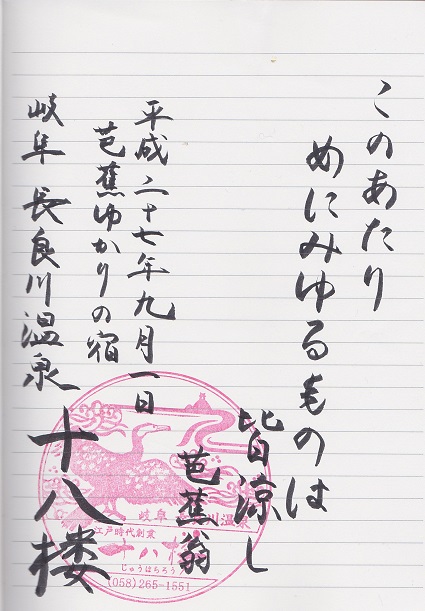 このあたり
めにみゆるものは
皆涼し
芭蕉翁
平成二十七年九月一日
芭蕉ゆかりの宿
岐阜 長良川温泉
十八楼
岐阜 長良川温泉
江戸時代創業
十八楼
じゅうはちろう
(058)265-1551